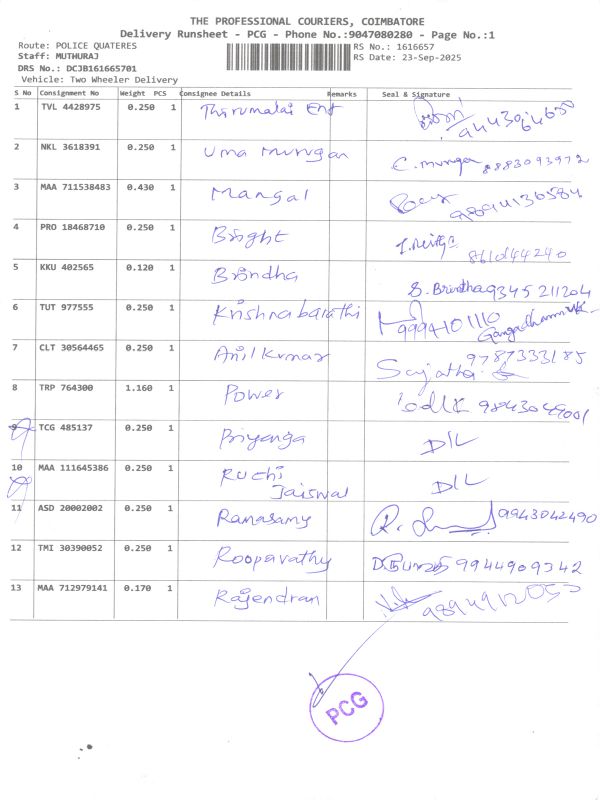 THE PROFESSIONAL COURIERS, COIMBATORE
Delivery Runsheet - PCG - Phone No.:9047080280 - Page No.:1
Route: POLICE QUATERES RS No.: 1616657
Staff: MUTHURAJ RS Date: 23-Sep-2025
DRS No.: DCJB161665701
Vehicle: Two Wheeler Delivery
S No Consignment No Weight PCS Consignee Details Remarks Seal & Signature
1 TVL 4428975 0.250 1 Thirumalai Ent
2 NKL 3618391 0.250 1 Uma Murugan C. Murugan 8883093972
3 MAA 711538483 0.430 1 Mangal 9894136584
4 PRO 18468710 0.250 1 Bright 861044240
5 KKU 402565 0.120 1 Brindha S. Brindha 9345211204
6 TUT 977555 0.250 1 Krishna barathi 9994101110
7 CLT 30564465 0.250 1 Anil Kumar Sujatha 9787333185
8 TRP 764300 1.160 1 Power 9843049001
9 TCG 485137 0.250 1 Priyanga D/L
10 MAA 111645386 0.250 1 Ruchi Jaiswal D/L
11 ASD 20002002 0.250 1 Ramasamy 9943042490
12 TMI 30390052 0.250 1 Roopavathy 9944909342
13 MAA 712979141 0.170 1 Rajendran
PCG